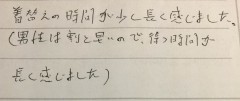 着替えの時間が少し長く感じました。
(男性は割と早いので、待つ時間が
長く感じました)